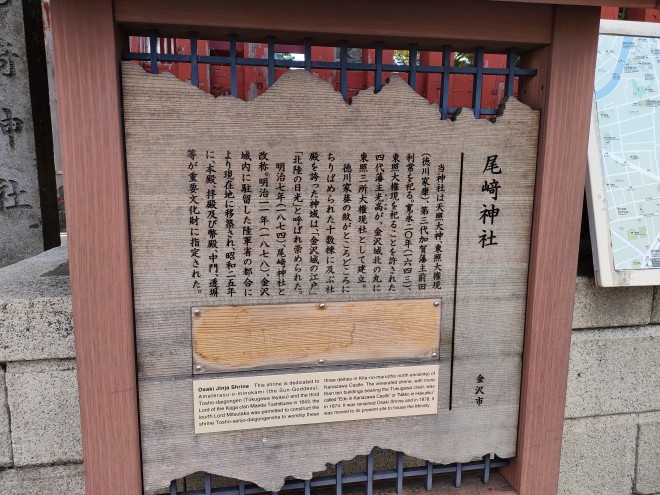 尾﨑神社
当神社は天照大神、東照大権現
(徳川家康)、第三代加賀藩主前田
利常を祀る。寛永二〇年(一六四三)、
東照大権現を祀ることを許された
四代藩主光高が、金沢城北の丸に
東照三所大権現社として建立。
徳川家葵の紋がところどころに
ちりばめられた十数棟に及ぶ社
殿を誇った神域は、「金沢城の江戸」
「北陸の日光」と呼ばれ崇められた。
明治七年(一八七四)、尾﨑神社と
改称。明治一一年(一八七八)、金沢
城内に駐留した陸軍省の都合に
より現在地に移築され、昭和二五年
に、本殿、拝殿及び幣殿、中門、透塀
等が重要文化財に指定された。
金沢市
Osaki Jinja Shrine This shrine is dedicated to
Amaterasu-o-mikami (the Sun-Goddess),
Tosho-daigongen (Tokugawa Ieyasu) and the third
Lord of the Kaga clan Maeda Toshitsune. In 1643, the
fourth Lord Mitsutaka was permitted to construct the
shrine Tosho-sansho-daigongensha to worship these
three deities in Kita-no-maru(the north enceinte) of
Kanazawa Castle. The venerated shrine, with more
than ten buildings bearing the Tokugawa crest, was
called "Edo in Kanazawa Castle" or "Nikko in Hokuriku".
In 1874, it was renamed Osaki Shrine and in 1878, it
was moved to its present site to house the Ministry.
神社